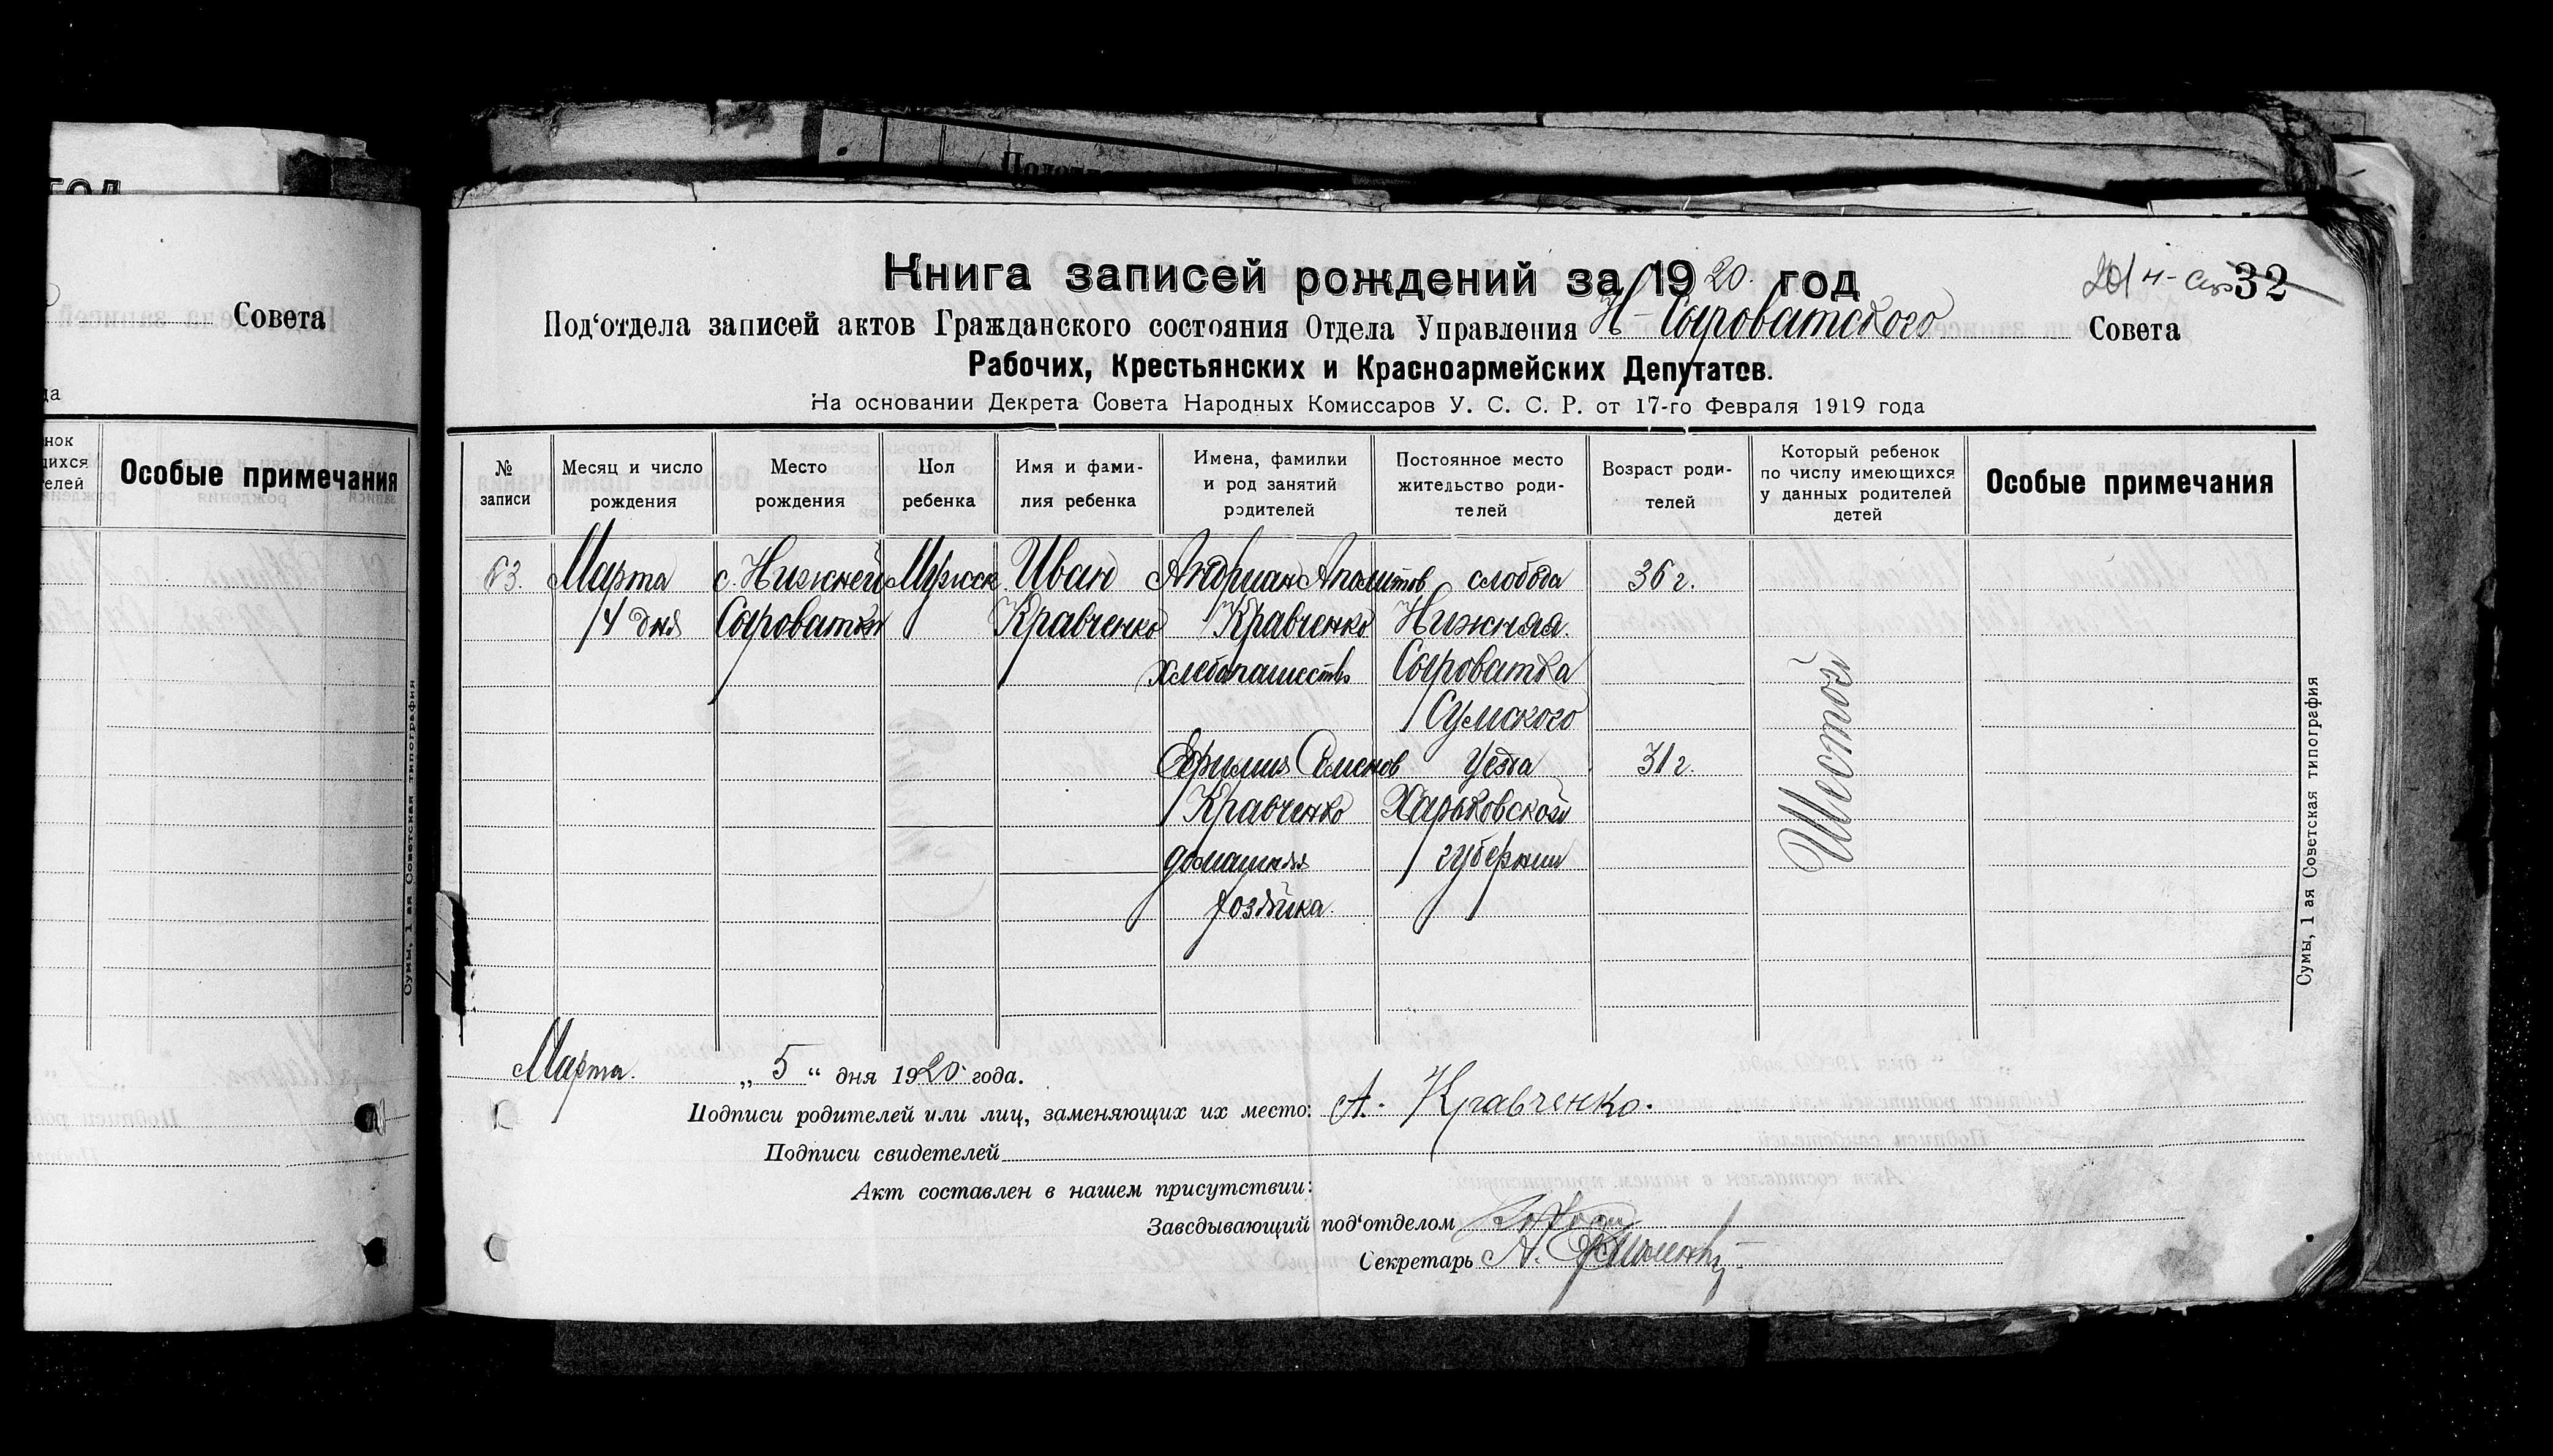 год
Совета
да
нок
щихся
телей
Особые примечания
Сумы, 1 ая Советская типография
Книга записей рождений за 1920. год
32
Под‘отдела записей актов Гражданского состояния Отдела Управления Н-Сыроватского Совета
Рабочих, Крестьянских и Красноармейских Депутатов.
На основании Декрета Совета Народных Комиссаров У. С. С. Р. от 17-го Февраля 1919 года
№
записи
Месяц и число
рождения
Место
рождения
Пол
ребенка
Имя и фами-
лия ребенка
Имена, фамилии
и род занятий
родителей
Постоянное место
жительство роди-
телей
Возраст роди-
телей
Который ребенок
по числу имеющихся
у данных родителей
детей
Особые примечания
Марта
4 дня
с. Нижней
Сыроватки
Мужск.
Иван
Кравченко
Андриан Аполитов
Кравченко
хлебопашество
Ефимия Семенов
Кравченко
домашняя
хозяйка.
слобода
Нижняя
Сыроватка
Сумского
уезда
Харьковской
губернии
36 г.
31 г.
Шестой
Сумы, 1 ая Советская типография
Марта. „ 5 “ дня 1920 года.
Подписи родителей или лиц, заменяющих их место: А. Кравченко.
Подписи свидетелей
Акт составлен в нашем присутствии:
Заведывающий под‘отделом
Секретарь